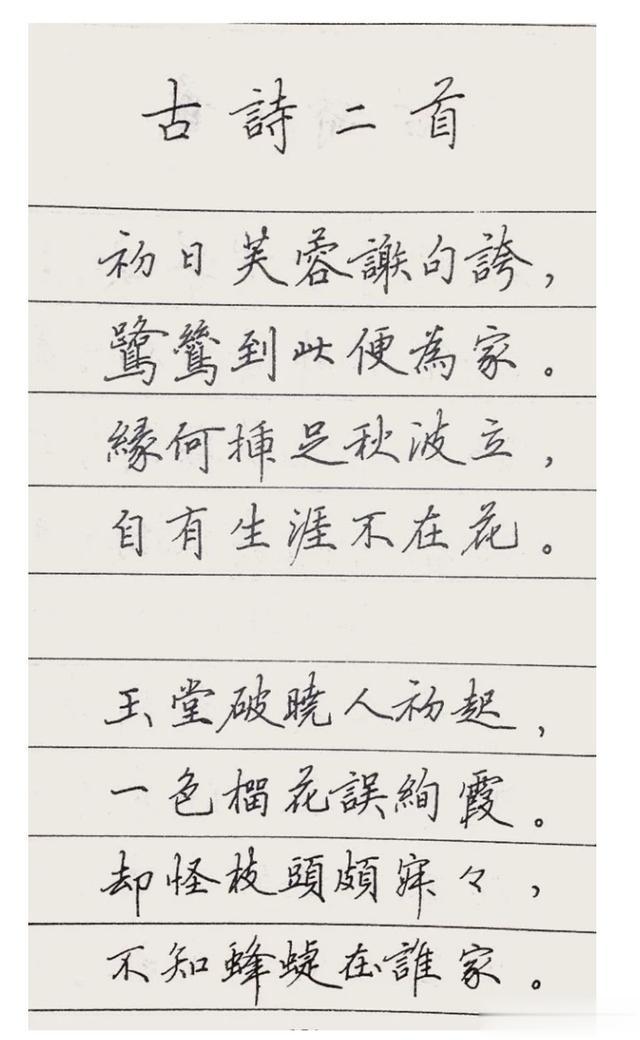 古詩二首
初日芙蓉謝句誇，
鷺鶿到此便為家。
緣何揷足秋波立，
自有生涯不在花。
玉堂破曉人初起，
一色榴花誤絢霞。
却怪枝頭頗寂々，
不知蜂蜨在誰家。